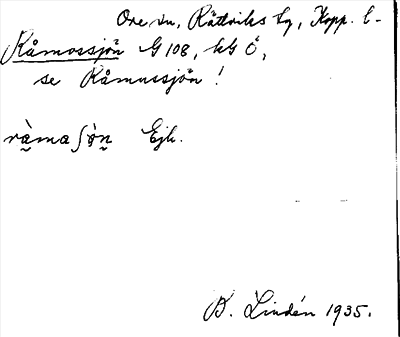 Ore sn, Rättviks tg, Kopp. l.
Råmossjön G 108, hG Ö,
se Råmussjön!
rà̰ma∫ò̰n̰ Ejk.
B. Lindén 1935.